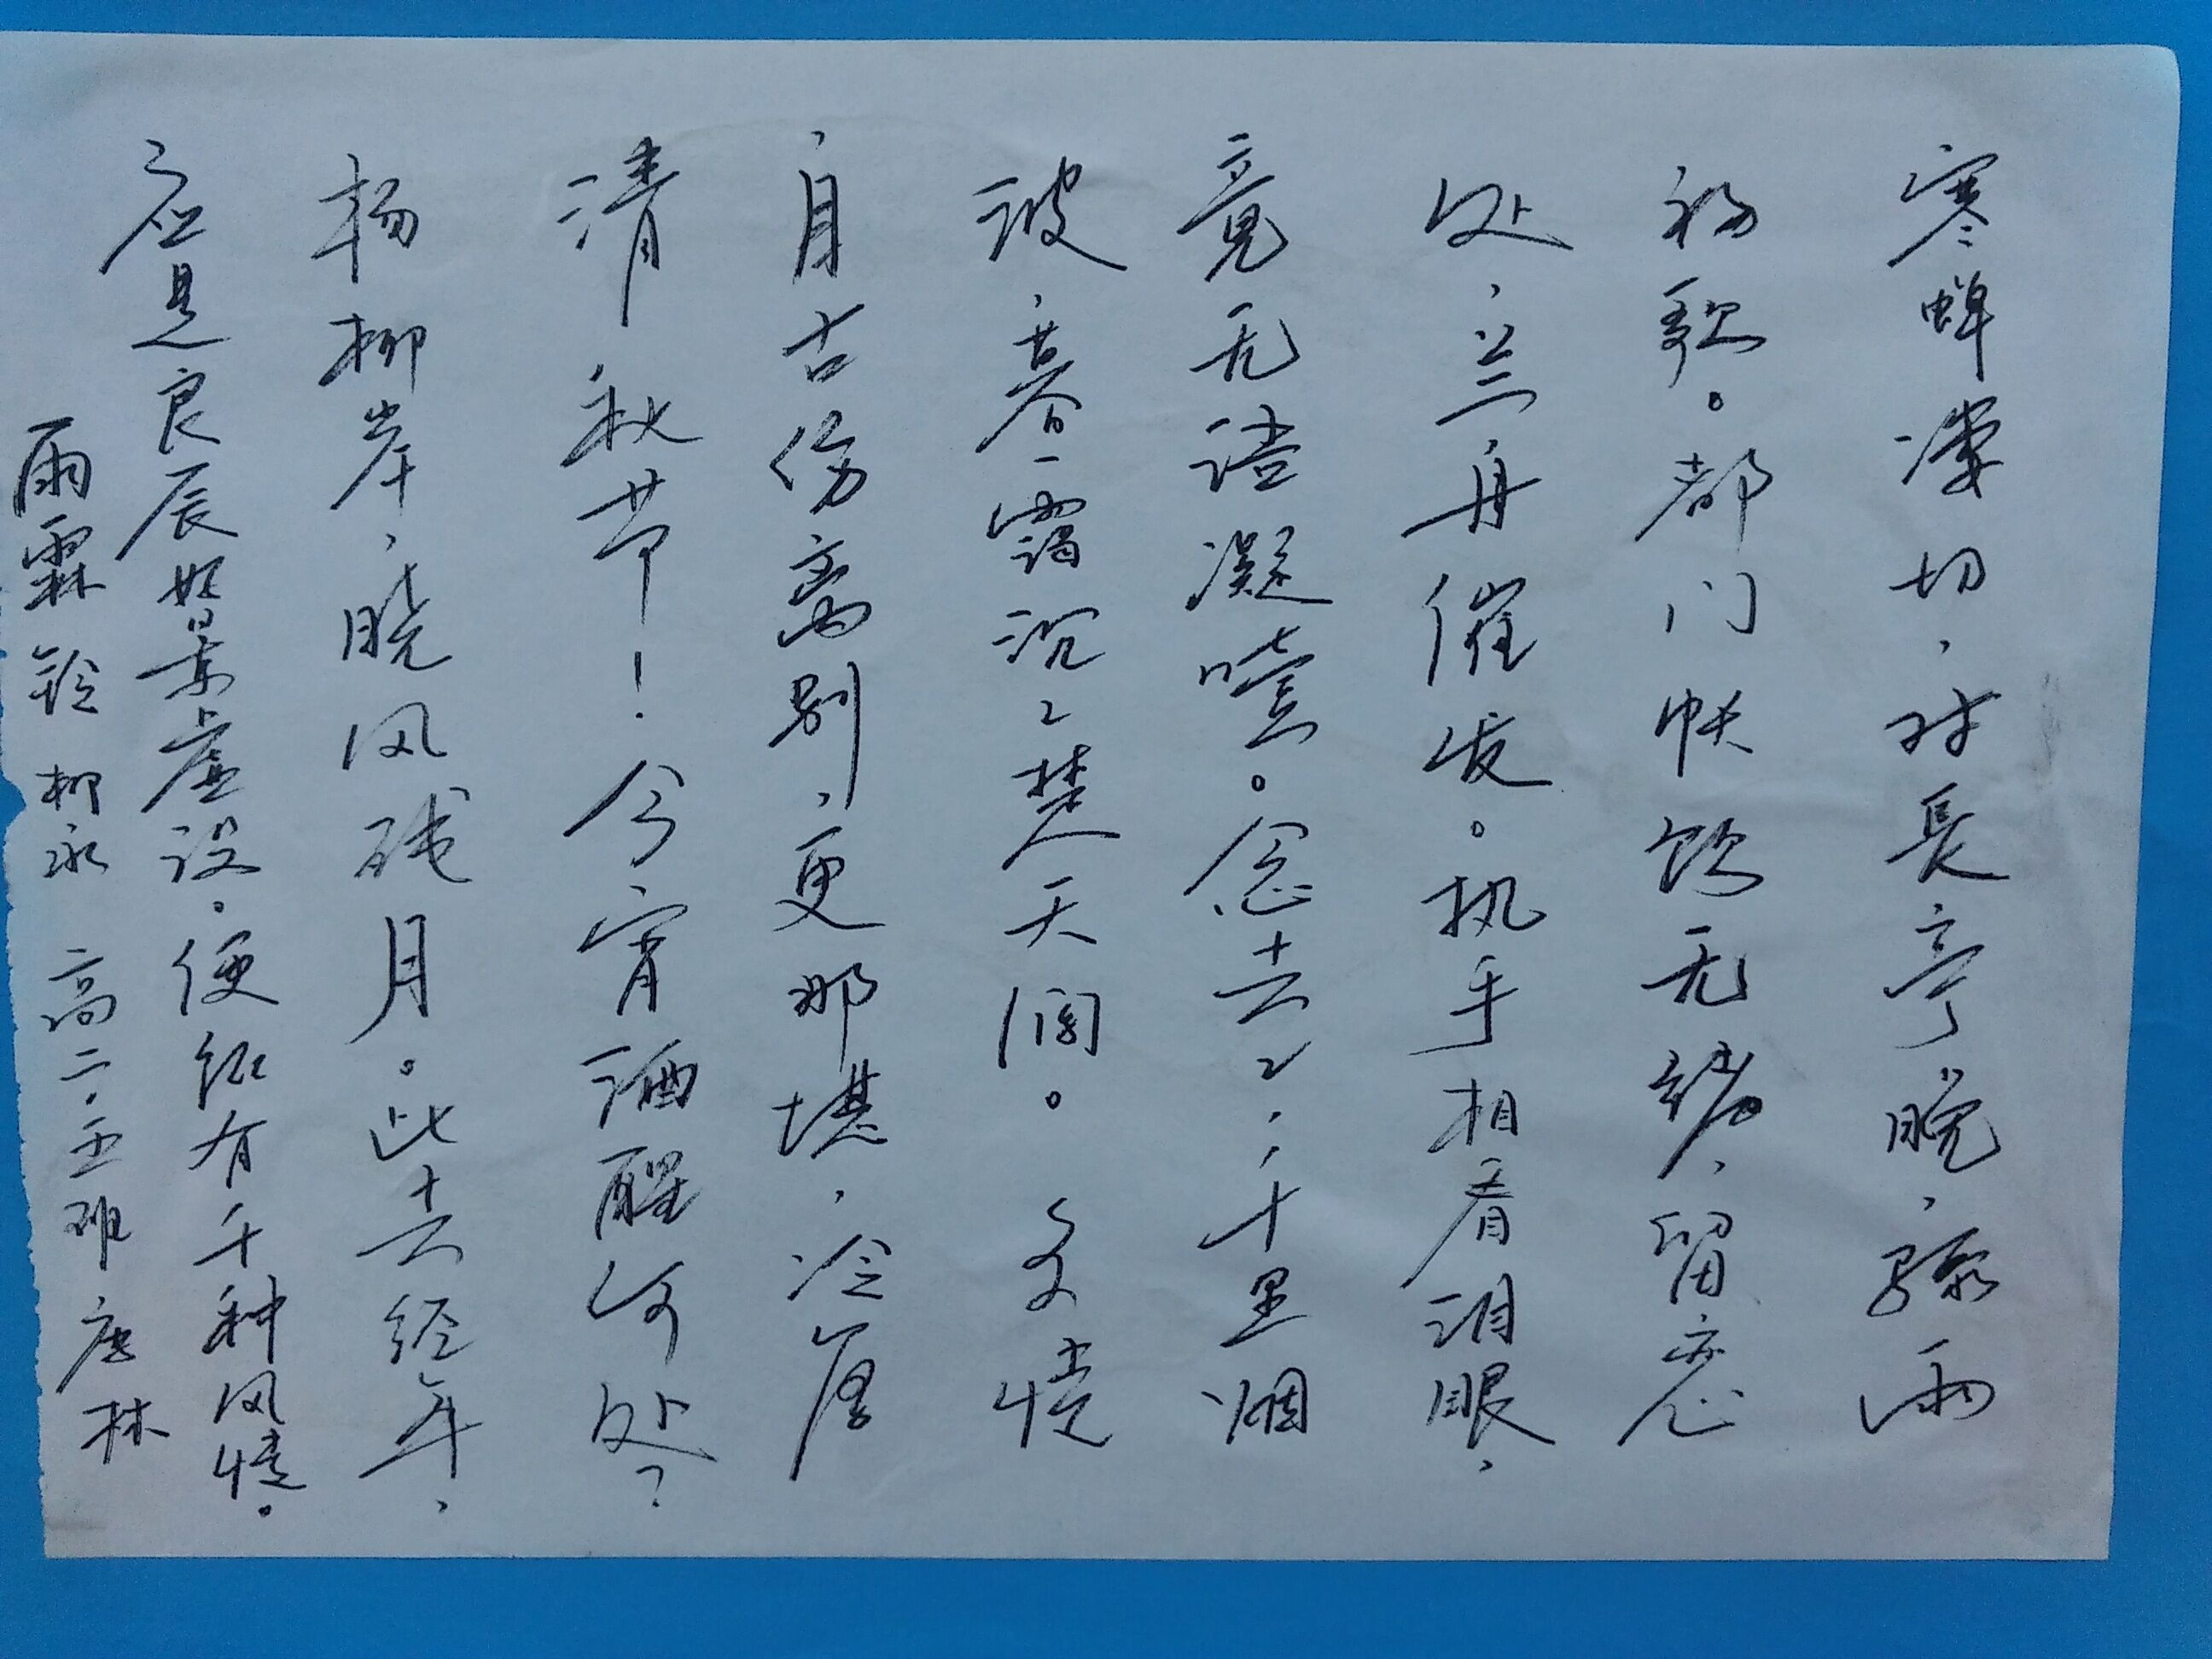 寒蝉凄切，对長亭晚，骤雨
初歇。都门帐饮无绪，留恋
处，兰舟催发。执手相看泪眼，
竟无语凝噎。念去々，千里烟
波，暮霭沉々楚天阔。多情
自古伤离别，更那堪，冷落
清秋节！今宵酒醒何处？
杨柳岸，晓风残月。此去经年，
应是良辰好景虚设。便纵有千种风情。
雨霖铃 柳永 高二.五班 唐林